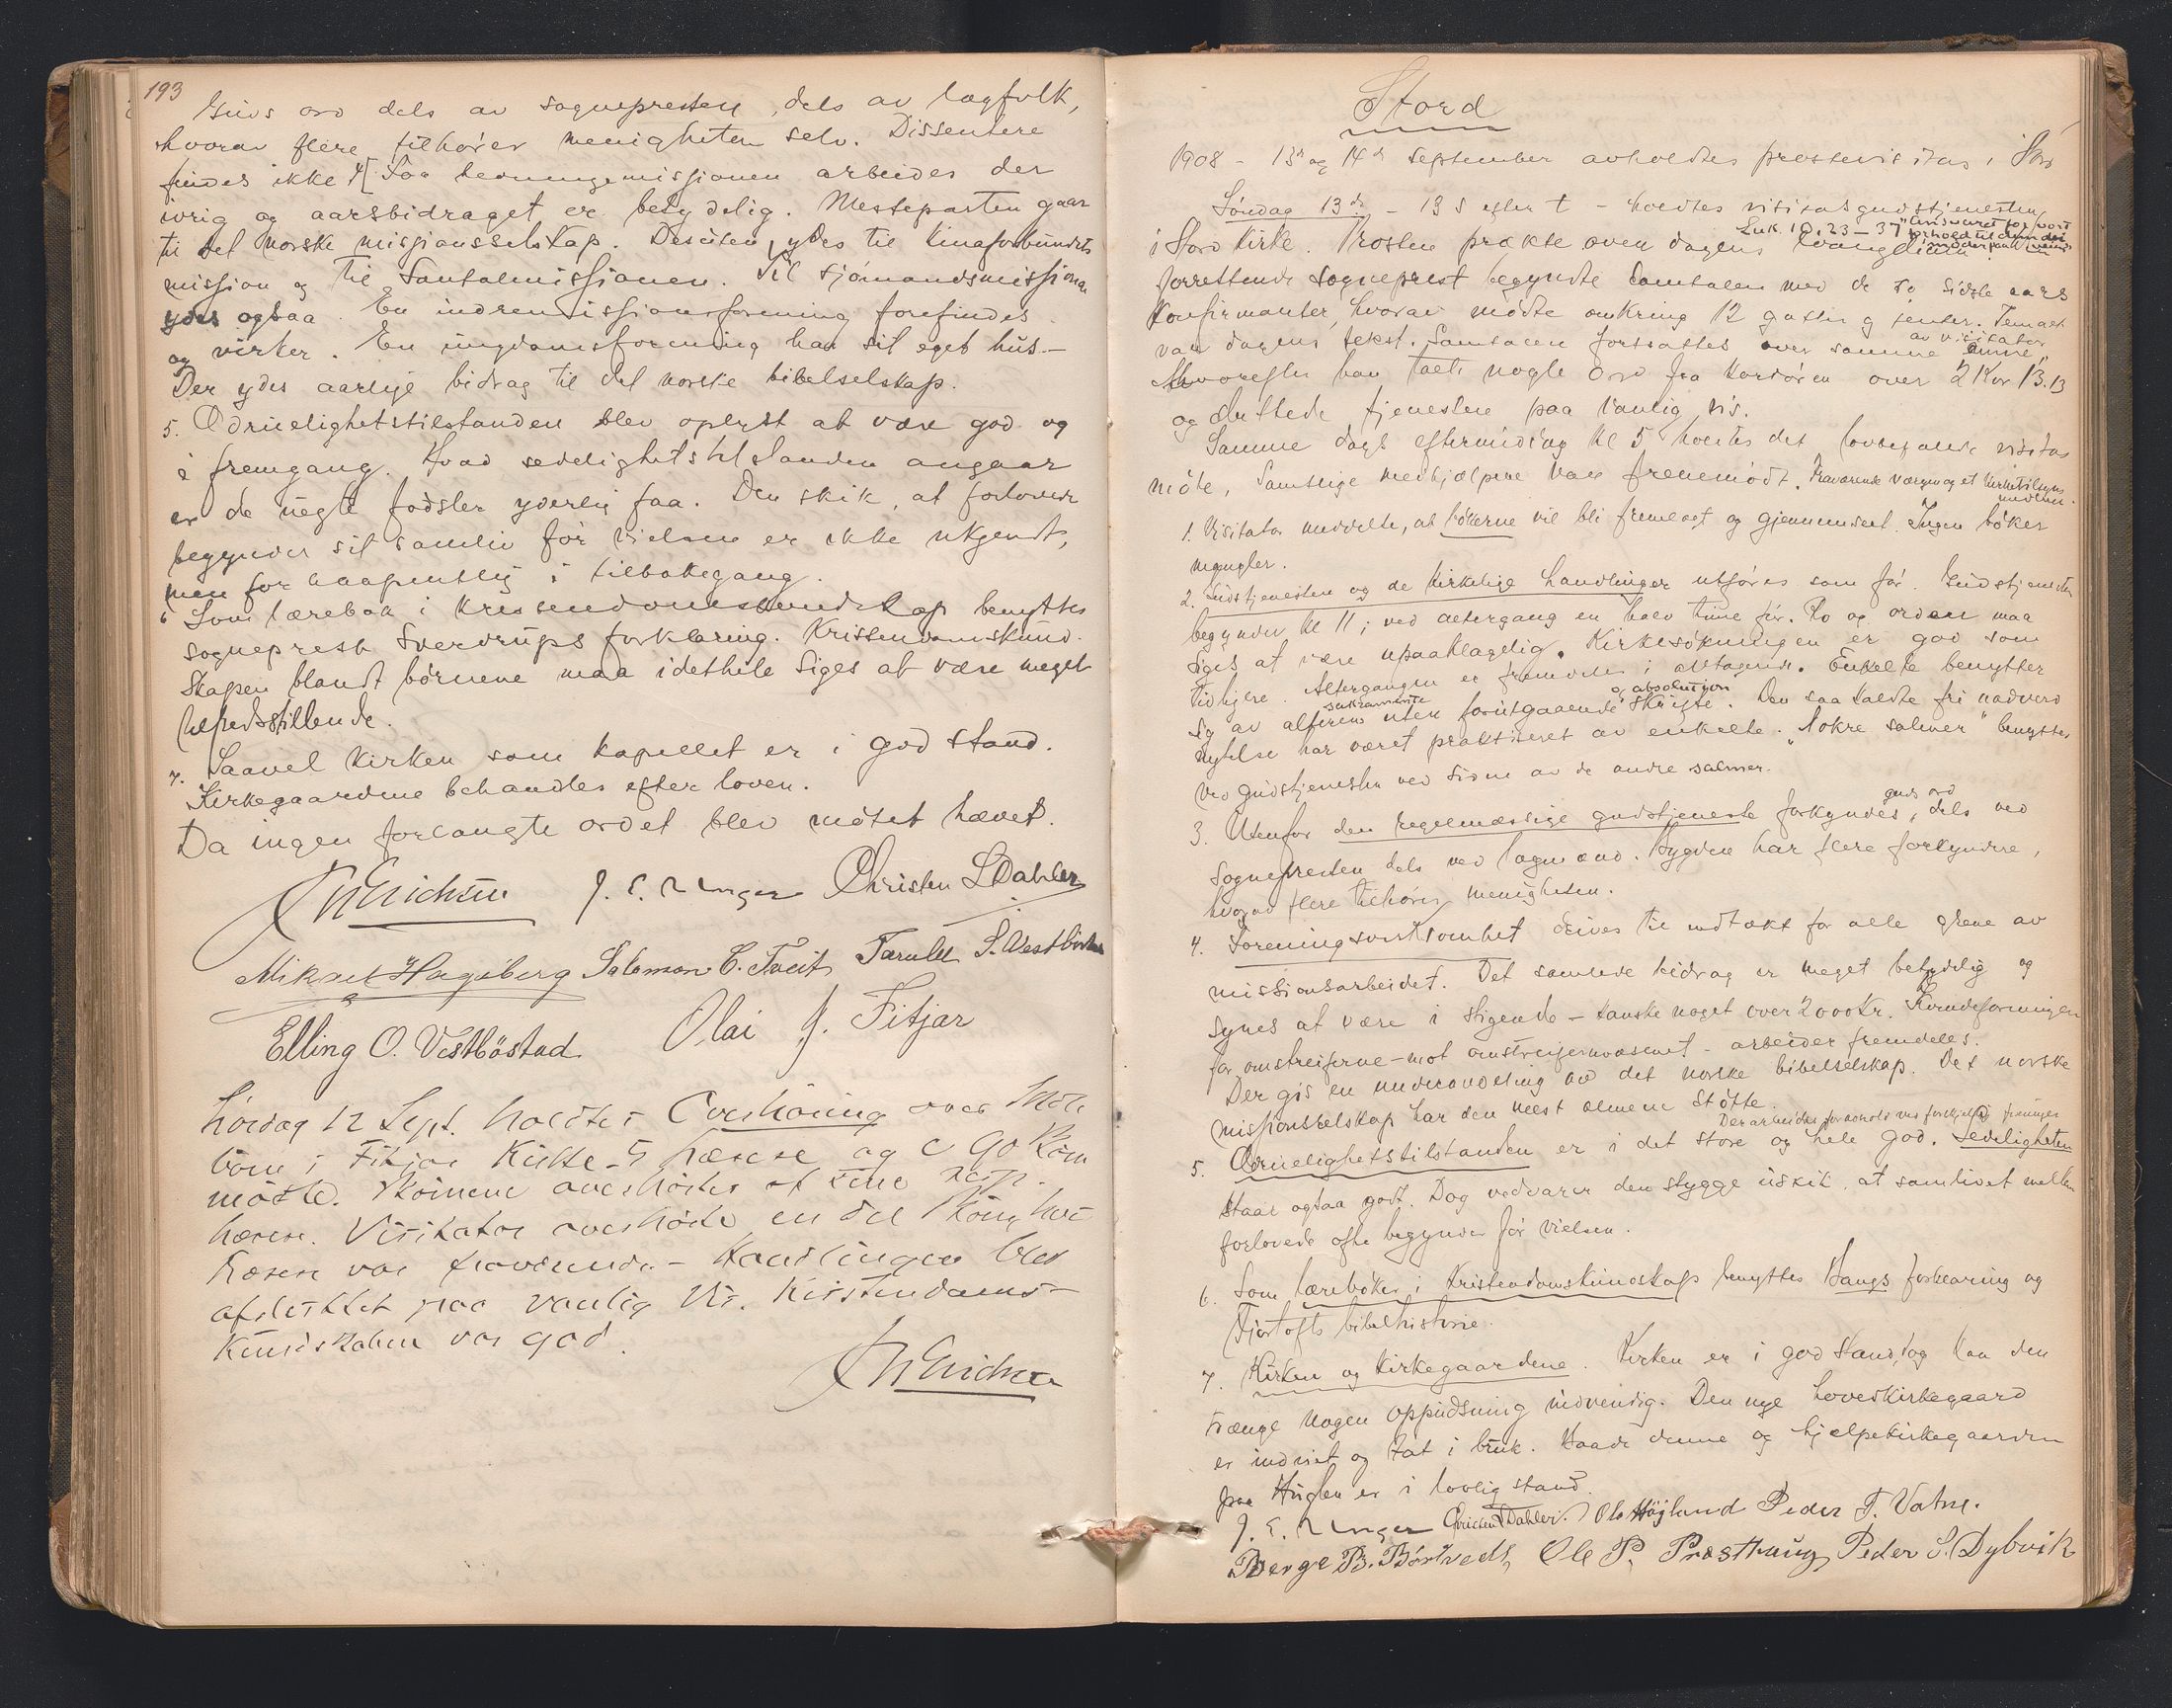 193
Guds ord dels av sognepresten, dels av lægfolk,
hvorav flere tilhører menigheten selv. Dissentere
findes ikke 4[ For hedningemissjonen arbeides der
ivrig og aarsbidraget er betydelig. Mesteparten gaar
til det norske missjonsselskap. Desuten ydes til Kinaforbundets
mission og til Santalmissjonen. Til Sjømandsmissjonen
ydes ogsaa. En indremissionsforening forefindes
og virker. En ungdomsforening har sit eget hus.–
Der ydes aarlige bidrag til det norske bibelselskap.
5. Ædruelighetstilstanden blev oplyst at være god og
i fremgang. Hvad sedelighetstilstanden angaar
er de uegte fødsler yderlig faa. Den skik, at forlovede
begynder sit samliv før vielsen er ikke ukjendt,
men forhaapentlig i tilbakegang.
6 Som lærebok i kristendomskundskap benyttes
sogneprest Sverdrups forklaring. Kristendomskund-
skapen blandt børnene maa idethele siges at være meget
tilfredsstillende.
7. Saavel kirken som kapellet er i god stand.
Kirkegaardene behandles efter loven.
Da ingen forlangte ordet blev møtet hævet.
J. E. Unger Christen S. Dahler
Mikael Hageberg Salomon C. Tveit S. Vestbøstad
Elling O. Vestbøstad Olai J. Fitjar
Lørdag 12 Sept. holdtes Overhøring over Skole
børn i Fitjar Kirke. 5 Lærere og c 90 Børn
mødte. Børnene overhørtes af sine resp.
Lærere. Visitator overhørte en del Børn hvis
Lærere var fraværende – Handlingen blev
afsluttet paa vanlig Vis. Kristendoms-
kundskaben var god.
Stord
1908 – 13de og 14de September avholdtes prostevisitas i Stord
Søndag 13de – 13 S efter t – holdtes visitasgudstjenesten
Luk. 10.23–37 "Ansvaret for vort forhold til
i Stord Kirke. Prosten prækte over dagens Evangelium
Forrettende sogneprest begyndte samtalen med de to sidste aars
Konfirmanter, hvorav mødte omkring 12 gutter og jenter. Temaet
var dagens tekst. Samtalen fortsattes av visitator over samme emne,
hvorefter han talte nogle ord fra kordøren over 2 Kor 13.13
og sluttede tjenesten paa vanlig vis.
Samme dags eftermiddag kl 5 holdtes det lovbefalede visitas
møte. Samtlige medhjælpere var fremmødt. Fraværende værgen og et kirketilsyns
medlem.
1. Visitator meddelte, at bøkerne vil bli fremlagt og gjennemset. Ingen bøker
mangler.
2. Gudstjenesten og de kirkelige handlinger utføres som før. Gudstjenesten
begynder kl 11; ved altergang en halv time før. Ro og orden maa
siges at være upaaklagelig. Kirkesøkningen er god som
tidligere. Altergangen er fremdeles i avtagende. Enkelte benytter
sig av alterens sakramente uten forutgaaende skrifte og absolution. Den saa kaldte fri nadverd
nytelse har været praktiseret av enkelte. "Nokre salmer" benyttes
ved gudstjenesten ved siden av de andre salmer.
3. Utenfor den regelmæssige gudstjeneste forkyndes guds ord, dels ved
sognepresten dels ved lægmænd. Bygden har flere forkyndere,
hvorav flere tilhører menigheten.
4. Foreningsvirksomhet drives til indtækt for alle grene av
missionsarbeidet. Det samlede bidrag er meget betydelig og
synes at være i stigende – kanske noget over 2000 Kr. Kvindeforeningen
for omstreiferne – mot omstreifervæsenet – arbeider fremdeles.
Der gis en underavdeling av det norske bibelselskap. Det norske
missionsselskap har den mest almene støtte.
Der arbeides for avhold ved foreninger
5. Ædruelighetstilstanden er i det store og hele god. Sedeligheten
staar ogsaa godt. Dog vedvarer den stygge uskik, at samlivet mellem
forlovede ofte begynder før vielsen.
6. Som lærebøker i Kristendomskundskap benyttes Vangs forklaring og
Fjørtofts bibelhistorie.
7. Kirken og kirkegaardene. Kirken er i god stand, dog kan den
trænge nogen oppudsning indvendig. Den nye hovedkirkegaard
er indviet og tat i bruk. Baade denne og hjelpekirkegaarden
paa Huglen er i lovlig stand.
J. E. Unger Christen S Dahler. Ole Høyland Peder T. Vatne.
Berge B. Børtvedt, Ole P. Præsthaug, Peder S. Dybvik